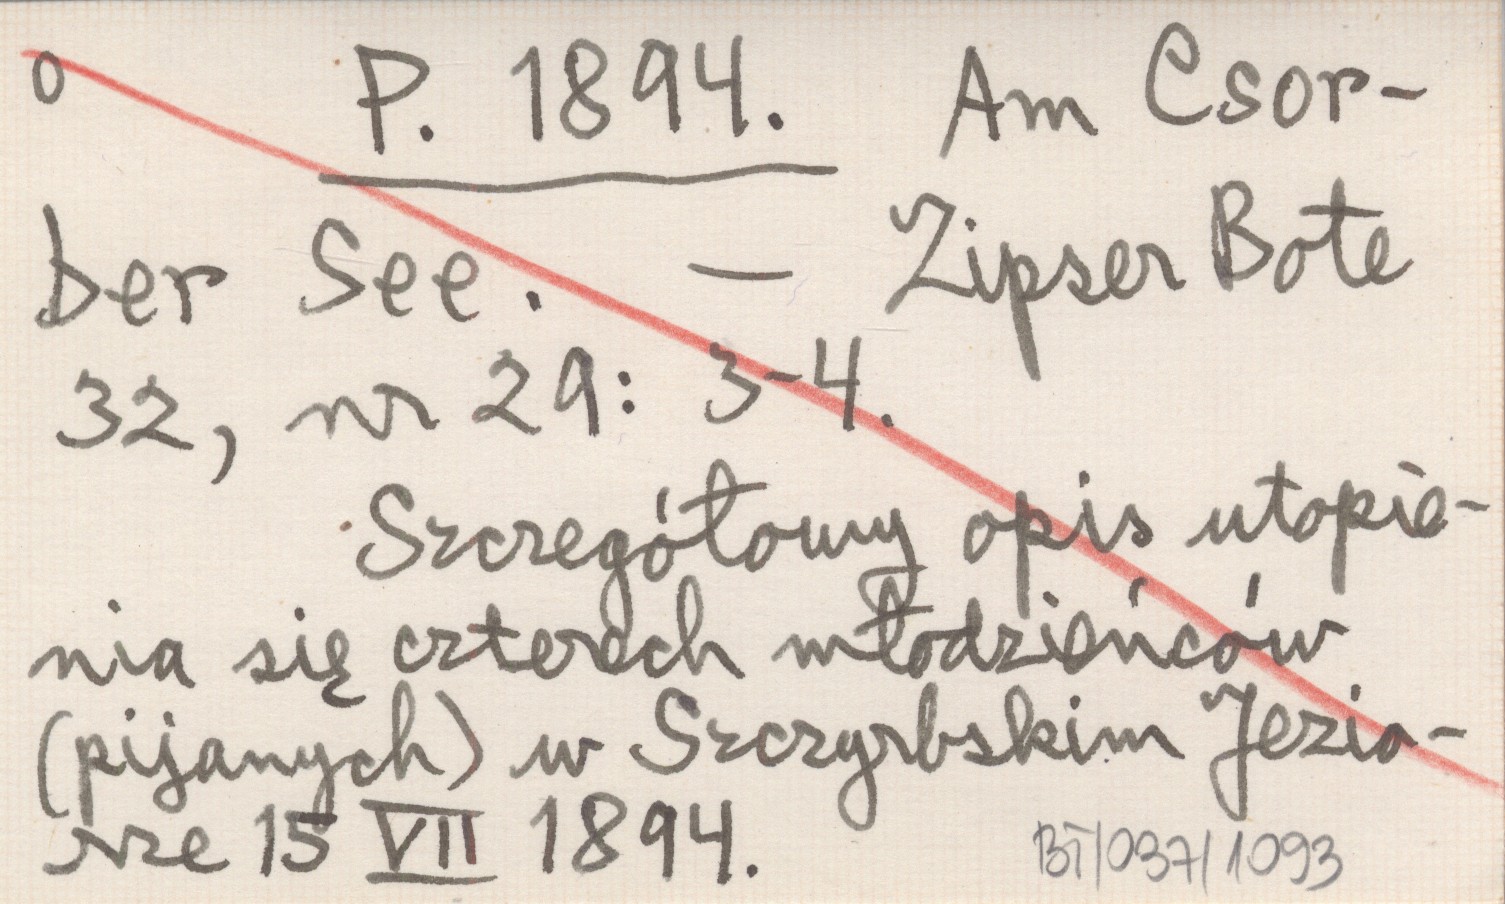 0 P. 1894. Am Csor-
ber See. — Zipser Bote
32, nr 29: 3-4.
Szczegółowy opis utopie-
nia się czterech młodzieńców
(pijanych) w Szczyrbskim Jezio-
rze 15 VII 1894.
BT/037/1093